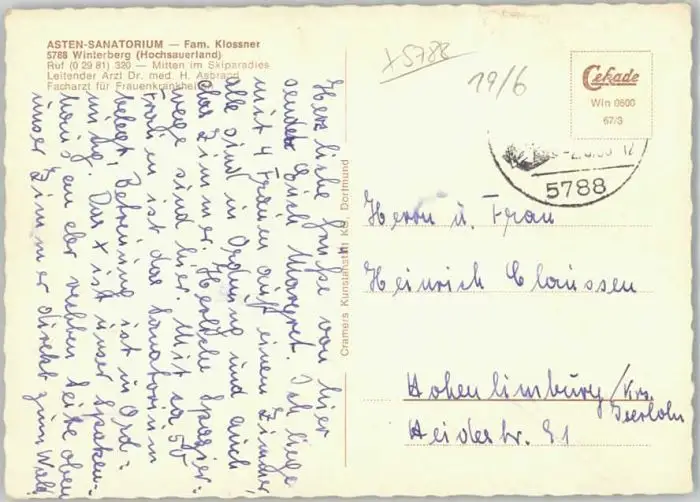 ASTEN-SANATORIUM — Fam. Klossner
5788 Winterberg (Hochsauerland)
Ruf (0 29 81) 320 — Mitten im Skiparadies
Leitender Arzt Dr. med. H. Asbrand
Facharzt für Frauenkrankhei
Herzliche Grüße von hier
sendet Euch Margret. Ich liege
mit 4 Frauen auf einem Zimmer,
alle sind in Ordnung und auch
das Zimmer. Herrliche Spazier-
wege sind hier. Mit ca 55
Frauen ist das Sanatorium
belegt, Betreuung ist in Ord-
nung. Das x ist unser
haus an der rechten Seite oben
unser Zimmer direkt zum Wald
Cramers Kunstanstalt KG, Dortmund
x 5788
19/6
Cekade
Win 0600
67/3
5788
Herrn u. Frau
Heinrich Claussen
Hohenlimburg / Krs.
Iserlohn
Heidestr. 21